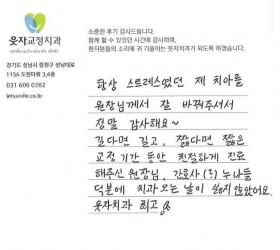 웃자교정치과
소중한 후기 감사드립니다.
함께 할 수 있었던 시간에 감사하며,
환자분들의 소리에 귀 기울이는 웃자치과가 되도록 하겠습니다.
경기도 성남시 중원구 성남대로
1156 도원타워 3,4층
031 606 0282
letssmile.co.kr
항상 스트레스였던 제 치아를
원장님께서 잘 바꿔주셔서
정말 감사해요~
길다면 길고, 짧다면 짧은
교정 기간 동안 친절하게 진료
해주신 원장님, 간호사(?) 누나들
덕분에 치과 오는 날이 싫지 않았어요.
웃자치과 최고